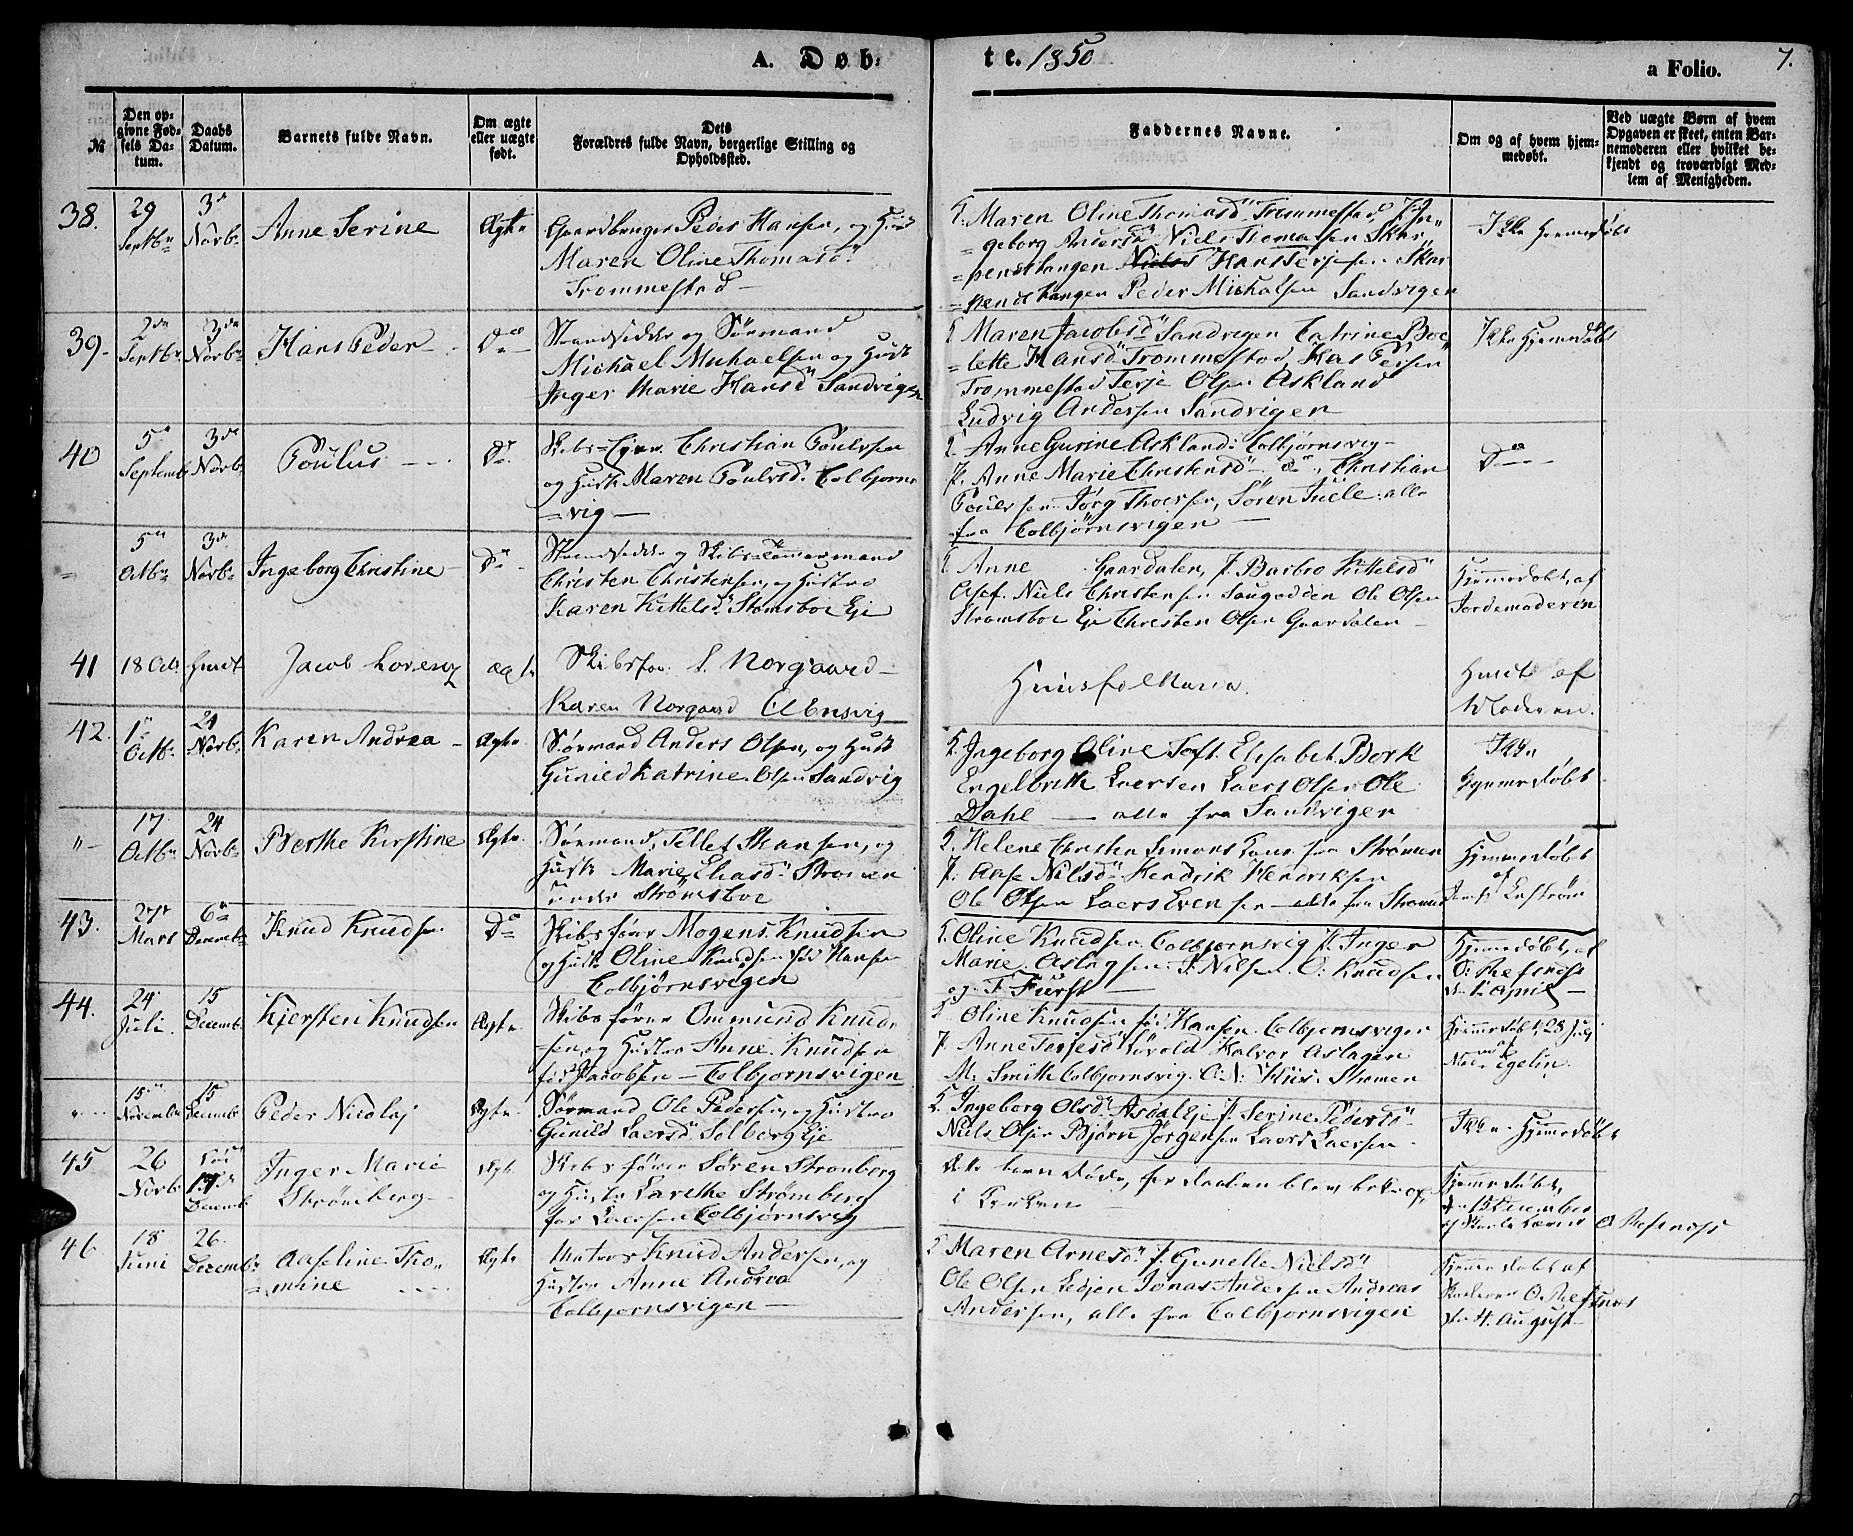 A. Døb-
te. 1850
a Folio.
7.
№
Den op-
givne Fød-
sels Da-
tum.
Daabs
Datum.
Barnets fulde Navn.
Om ægte
eller uægte
født.
Dets
Forældres fulde Navn, borgerlige Stilling og
Opholdssted.
Faddernes Navne.
Om og af hvem hjem-
medøbt.
Ved uægte Børn af hvem
Opgaven er skeet, enten Bar-
nemoderen eller hvilket be-
kjendt og troværdigt Med-
lem af Menigheden.
38.
29
Septbr
3de
Novbr
Anne Serine
Ægte
Gaardbruger Peder Hansen, og Hust
Maren Oline Thomasd
Trommestad
Maren Oline Thomasd Trommestad J. In-
geborg Andersd Niels Thomassen Skar-
penestangen Niels Hans Terjesen Skar
penestangen Peder Michalsen Sandvigen
Ikke Hjemmedøbt
39.
2den
Septbr
3de
Novbr
Hans Peder
Do
Strandsidder og Sømand
Michael Michaelsen og Hust
Inger Marie Hansd Sandvigen
Maren Jacobsd Sandvigen Catrine Boe
lette Hansd Trommestad,
Trommestad Terje Olsen Askland
Ludvig Andersen Sandvigen
Ikke Hjemmedøbt
40
5te
Septemb
3de
Novb
Poulus
Do
Skibs Christian Poulsen
og Hust. Maren Poulsd Colbjorns
vig
Anne Gurine Askland Colbjørnsvig
J. Anne Marie Christensd do, Christian
Poulsen Jørg Thorsen, Sören Juele alle
fra Colbjørnsvigen
Do
5te
Octbr
3de
Novbr
Ingeborg Christine
Do
Strandsidder og Skibstømmermand
Christen Christensen, og Hustro
Karen Kittelsd Stomsboe Eje
Anne Gaardalen, J. Barbro Kittelsd
Niels Christensen Ole Olsen
Stromsboe Eje Christen Olsen Gaardalen
Hjemmedøbt, af
Jordemoderen
41
18 Oct
Jacob Lorenz
ægte
Skibsfør. L. Norgaard
Karen Norgaard
af
Moderen.
42.
1te
Octb.
24
Novb.
Karen Andrea
Ægte
Sømand Anders Olsen, og Hust
Gunild Katrine Olsen Sandvig
Ingeborg Oline Toft Elisabet Bork
Engelbrith Laersen Laers Olsen Ole
Dahl — alle fra Sandvigen
Ikke
Hjemmedøbt
17
Octbr
24
Novb
Berthe Kirstine
Ægte
Sømand, Tellef Hansen, og
Hust. Marie Eliasd Stromen
under Strømsboe
Helene Christen Simons Kone fra Strømen
J. Aase Nilsd Hendrik Hendriksen
Ole Olsen Laers Evensen alle fra Stromen
Hjemmedøbt
af
43.
27de
Mars
6te
Decemb
Knud Knudsen
Do
Skibsfører Mogens Knudsen
og Hust. Oline Knudsen fød Hansen
Colbjørnsvigen
Oline Knudsen Colbjornsvig J. Inger
Marie Aslagsen J. Nilsen O. Knudsen
og F. Furst
Hjemmedøbt, af
O. Refsnes
d. 1 April
44.
24
Juli.
15
Decemb
Kjersten Knudsen
Ægte
Skibsfører Ommund Knud-
sen, og Hustro Anne Knudsen
fød Jacobsen — Colbjornsvigen
Oline Knudsen fød Hansen Colbjornsvigen
J. Anne Terjesd Halvor Aslagsen
M. Smith Colbjornsvig. C. N. Stromen
Hjemmedøbt 28 July
af
15de
Novemb
15
Decemb
Peder Nicolaj
Ægte
Sømand, Ole Pedersen, og Hustro
Gunild Laersd Solberg Eje
Ingeborg Olsd Asdal Eje J. Serine Pedersd
Niels Olsen Bjørn Jørgensen Laers Laersen
Ikke Hjemmedøbt
45
26
Novb
Decemb
Inger Marie
Strömberg
Ægte
Skibsfører Sören Stromberg
og Hustro Larethe Strömberg
fød Laersen Colbjørnsvig
Dette barn døde, før daaben blev
i Kirken
Hjemmedøbt,
den 15 December
O Refsnes
46.
18
Juni
26.
Decemb
Aaseline Tho-
mine
Ægte
Matros Knud Andersen, og
Hustro Anne Andrea
Colbjornsvigen
Maren Arnesd J. Gunelle Nielsd
Ole Olsen Jonas Andersen Andreas
Andersen, alle fra Colbjornsvigen
Hjemmedøbt af
O. Refsnes
den 4 August